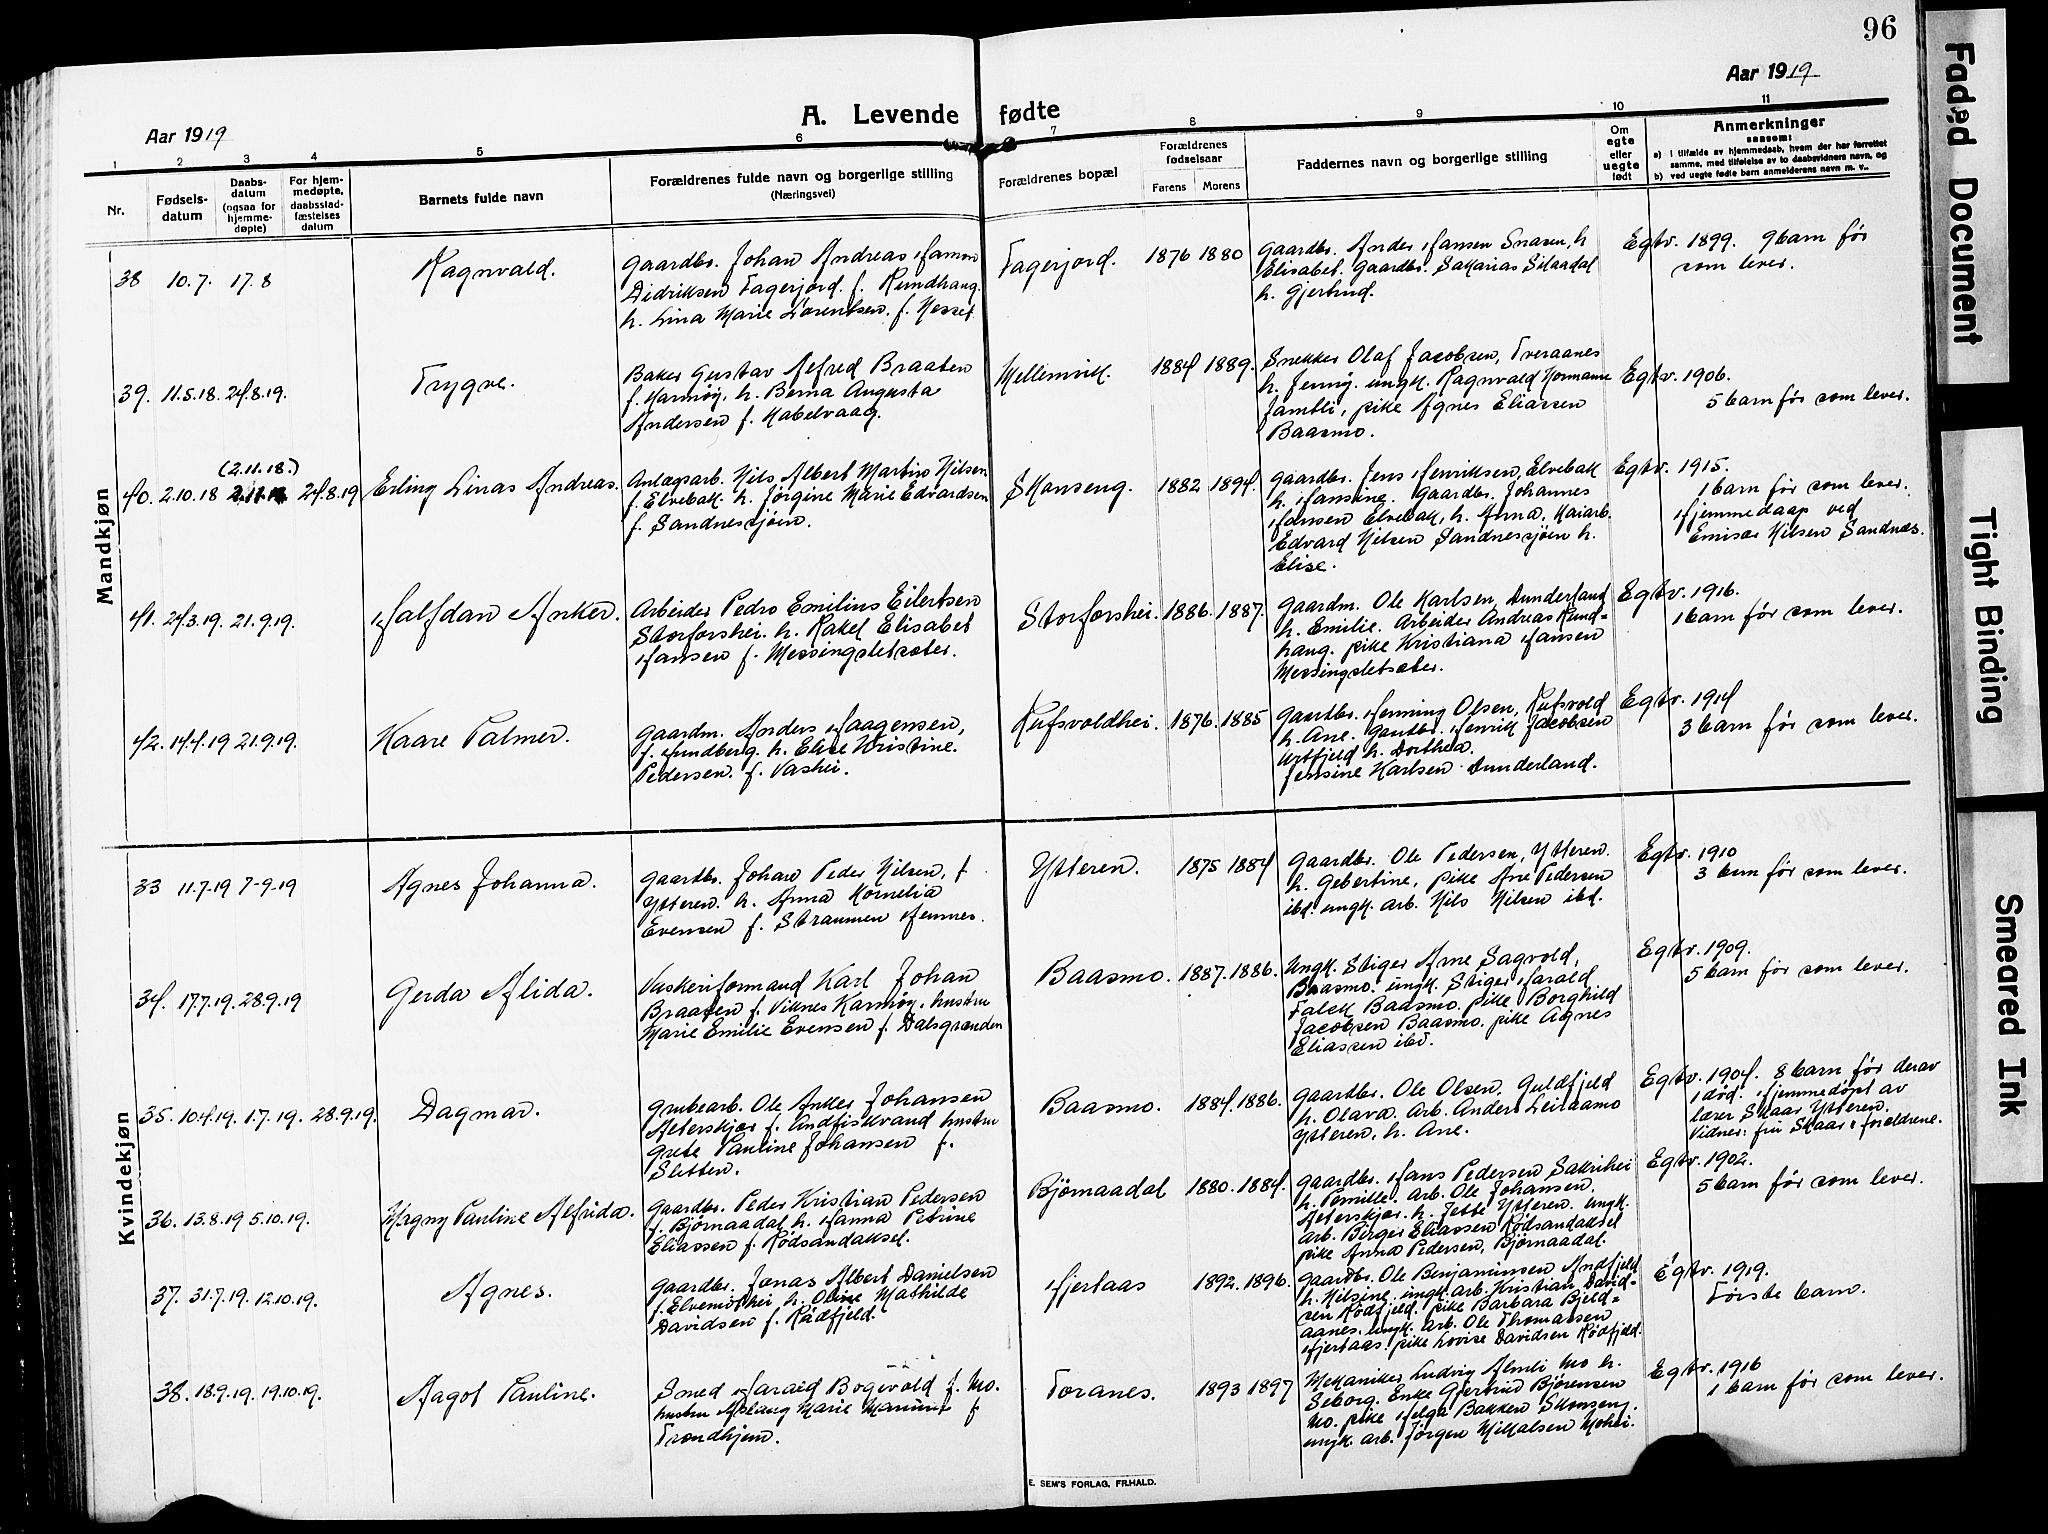 96
Aar 1919
Aar 1919
A. Levende fødte
1 2 3 4 5 6 7 8 9 10 11
Nr.
Fødsels-
datum
Daabs-
datum
(ogsaa for
hjemme-
døpte)
For hjem-
medøpte,
daabsstad-
fæstelses
datum
Barnets fulde navn
Forældrenes fulde navn og borgerlige stilling
(Næringsvei)
Forældrenes bopæl
Forældrenes
fødselsaar
Farens Morens
Faddernes navn og borgerlige stilling
Om
egte
eller
uegte
født
Anmerkninger
saasom:
a) i tilfælde av hjemmedaab, hvem der har forrettet
samme, med tilføielse av to daabsvidners navn, og
b) ved uegte fødte barn anmelderens navn m. v..
Mandkjøn
38 10.7. 17.8
Ragnvald.
Gaardbr. Johan Andreas Hamon
Didriksen Fagerjord. f. Rundhaug.
h. Lina Marie Lorentsen. f. Nesset
Fagerjord. 1876 1880
Gaardbr. Anders Hansen Snasen, h
Elisabet. Gaardbr. Sakarias Silaadal
h. Gjertrud.
Egtv. 1899. 9 barn før
som lever.
39. 11.5.18. 24.8.19.
Trygve.
Baker Gustav Alfred Braaten
f. Karmøy, h. Berna Augusta
Andersen f. Kabelvaag.
Mellemvik. 1884 1889.
Snekker Olaf Jacobsen, Tveraanes
h. Jenny. ungk. Ragnvald Normann
Jamtli, pike Agnes Eliassen
Baasmo.
Egtv. 1906.
5 barn før som lever.
40. 2.10.18 (2.11.18.) 24.8.19
Erling Linas Andreas.
Anlægsarb. Nils Albert Martin Nilsen
f. Elvebak. h. Jørgine Marie Edvardsen
f. Sandnessjøen.
Skonseng. 1882 1894.
Gaardbr. Jens Henriksen, Elvebak
h. Hansine. Gaardbr. Johannes
Hansen Elvebak, h. Anna. Kaiarb.
Edvard Nilsen Sandnessjøen h.
Elise.
Egtv. 1915.
1 barn før som lever.
Hjemmedaap ved
Emisær Nilsen Sandnes.
41. 24.3.19. 21.9.19.
Halfdan Anker.
Arbeider Pedro Emilius Eilertsen
Storforshei. h. Rakel Elisabet
Hansen f. Messingsletsæter.
Storforshei. 1886. 1887.
Gaardm. Ole Karlsen, Dunderland
h. Emilie. Arbeider Andreas Rund-
haug. pike Kristiana Hansen
Messingsletsæter.
Egtv. 1916.
1 barn før som lever.
42. 14.4.19 21.9.19.
Kaare Palmer.
Gaardm. Anders Haagensen,
f. Lundberg. h. Elise Kristine
Pedersen. f. Vashei.
Kufsvoldhei. 1876. 1885
Gaardbr. Henning Olsen, Kufsvold
h. Ane. Gaardbr. Henrik Jacobsen
Urtfjeld h. Dorthea.
Jensine Karlsen Dunderland.
Egtv. 1914
3 barn før som lever.
Kvindekjøn
33 11.7.19 7-9.19
Agnes Johanna.
Gaardbr. Johan Peder Nilsen, f
Ytteren. h. Anna Kornelia
Evensen f. Straumen Hemnes.
Ytteren. 1875 1884
Gaardbr. Ole Pedersen, Ytteren.
h. Gebertine, pike Ane Pedersen
ibd. ungk. arb. Nils Nilsen ibd.
Egtv. 1910
3 barn før som lever.
34. 17.7.19. 28.9.19
Gerda Alida.
Vaskeriformand Karl Johan
Braaten f. Viknes Karmøy. hustru
Marie Emilie Evensen f. Dalsgrænden
Baasmo. 1887. 1886.
Ungk. Stiger Arne Sagvold,
Baasmo. ungk. Stiger Harald
Falck Baasmo. pike Borghild
Jacobsen Baasmo. pike Agnes
Eliassen ibd.
Egtv. 1909.
5 barn før som lever.
35. 10.4.19. 1.7.19. 28.9.19.
Dagmar.
Grubearb. Ole Anker Johansen
Alterskjær f. Andfiskvand hustru
Grete Pauline Johansen f.
Sletten.
Baasmo. 1884. 1886.
Gaardbr. Ole Olsen, Guldfjeld
h. Olava. Arb. Anders Leiraamo
Ytteren, h. Ane.
Egtv. 1904. 8 barn før derav
1 død. Hjemmedøpt av
lærer Skaar Ytteren.
Vidner: fru Skaar & forældrene.
36. 13.8.19 5.10.19.
Magny Pauline Alfrida.
Gaardbr. Peder Kristian Pedersen
f. Bjørnaadal h. Hanna Petrine
Eliassen f. Rødsandaksel.
Bjørnaadal 1880. 1884.
Gaardbr. Hans Pedersen Sakrihei
h. Pernille. Arb. Ole Johansen.
Alterskjær. h. Jette Ytteren. ungk.
arb. Birger Eliassen Rødsandaksel
pike Anna Pedersen, Bjørnaadal.
Egtv. 1902.
5 barn før som lever.
37. 31.7.19. 12.10.19.
Agnes.
Gaardbr. Jonas Albert Danielsen
f. Elvemothei h. Oline Mathilde
Davidsen f. Rødfjeld.
Hjertaas 1892. 1896.
Gaardbr. Ole Benjaminsen Andfjeld
h. Nilsine. ungk. arb. Kristian David-
sen Rødfjeld. pike Barbara Bjeld-
aanes. ungk. arb. Ole Thomassen
Hjertaas. pike Lovise Davidsen Rødfjeld.
Egtv. 1919.
Første barn.
38. 18.9.19. 19.10.19.
Aagot Pauline.
Smed Harald Bogevold f. Mo.
hustru Aslaug Marie f
Trondhjem.
Toranes. 1893 1897
Mekaniker Ludvig Almli Mo h.
Seborg. Enke Gjertrud Bjørensen
Mo. pike Helga Bakken Skonseng.
ungk. arb. Jørgen Mikalsen Mohei.
Egtv. 1916
1 barn før som lever.
E. SEM'S FORLAG, FR.HALD.
Faded Document
Tight Binding
Smeared Ink